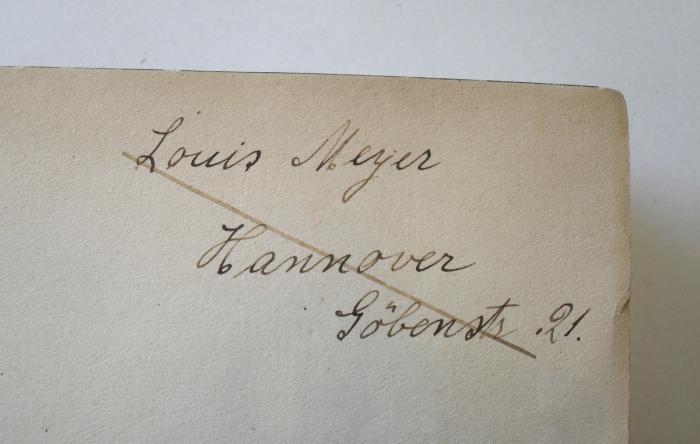 Louis Meyer
Hannover
Göbenstr 21.